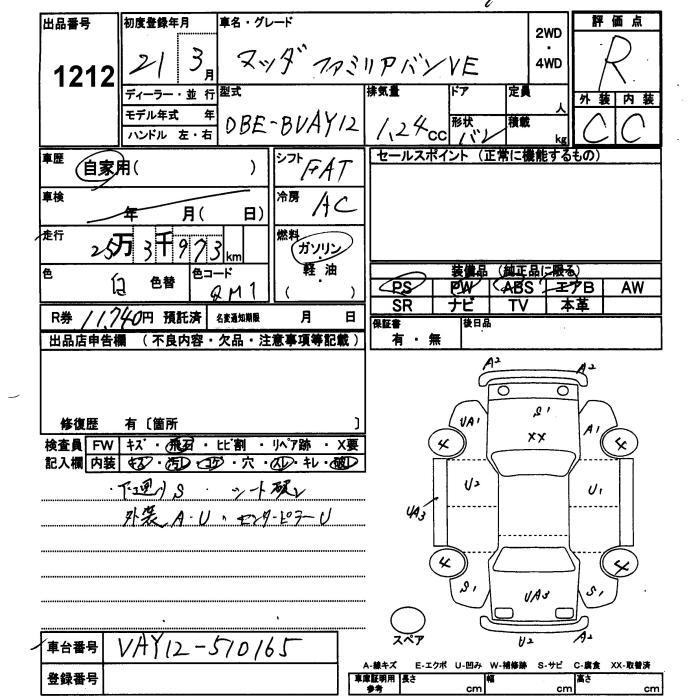 出品番号 初度登録年月 車名・グレード 2WD ・ 4WD 評価点
1212 21 3月 マツダ ファミリアバンVE R
ディーラー・並行 型式 排気量 ドア 定員 人 外装 内装
モデル年式 年 DBE-BVAY12 1.24cc 形状 バン 積載 kg C C
ハンドル 左・右
車歴 自家用( ) シフト FAT セールスポイント (正常に機能するもの)
車検 年 月( 日) 冷房 AC
走行 25万3千973km 燃料 ガソリン・軽油・( )
色 白 色替 色コード QM1 装備品 (純正品に限る)
PS PW ABS エアB AW
SR ナビ TV 本革
R券 11,740円 預託済 名変通知期限 月 日 保証書 有・無 後日品
出品店申告欄 (不良内容・欠品・注意事項等記載)
修復歴 有〔箇所 〕
検査員 FW キズ・飛石・ヒビ割・リペア跡・X要
記入欄 内装 キズ・汚レ・コゲ・穴・スレ・キレ・破レ
・下廻りS ・シート破レ
外装A・U・センターピラーU
A2
A2
S1
UA1 XX A1
4 4
U2 U1
UA3
4 4
S1 UA3 S1
U2 A2
スペア
車台番号 VAY12-510165
登録番号
A-線キズ E-エクボ U-凹み W-補修跡 S-サビ C-腐食 XX-取替済
車庫証明用参考 長さ cm 幅 cm 高さ cm